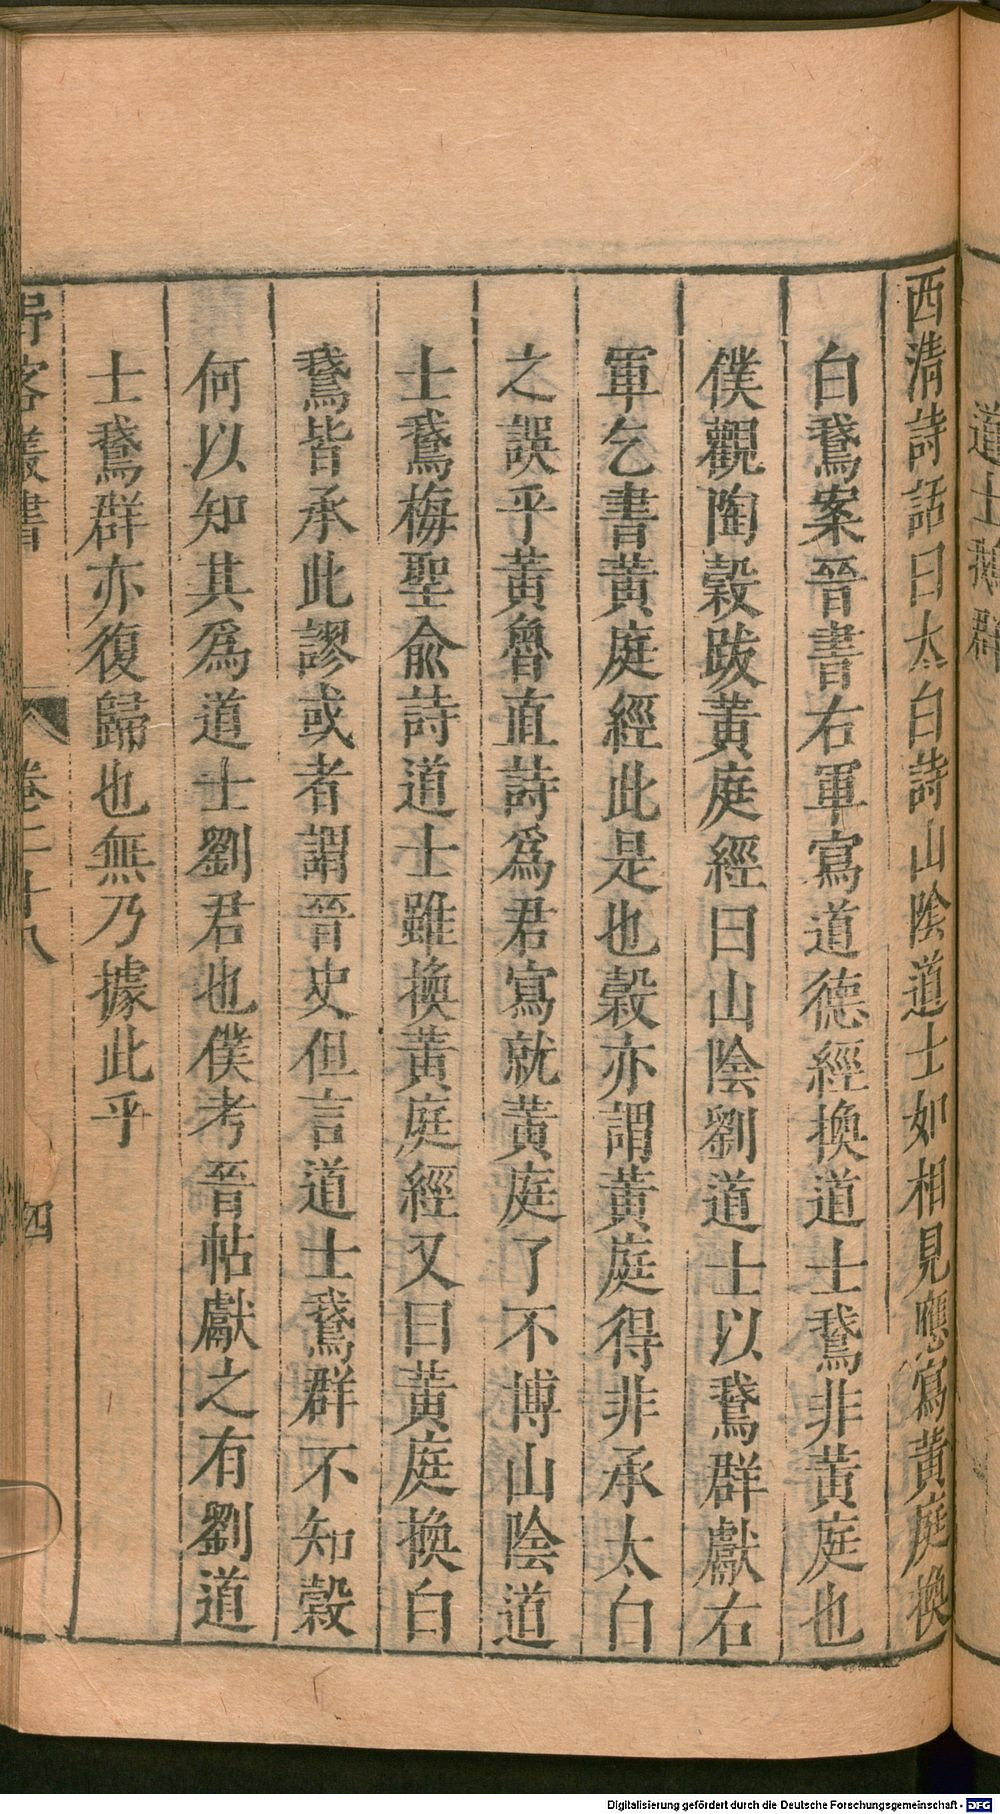 道士鵞群
西清詩話曰太白詩山陰道士如相見應寫黃庭換
白鵞案晉書右軍寫道德經換道士鵞非黃庭也
僕觀陶穀跋黃庭經曰山陰劉道士以鵞群獻右
軍乞書黃庭經此是也穀亦謂黃庭得非承太白
之誤乎黃魯直詩爲君寫就黃庭了不博山陰道
士鵞梅聖俞詩道士雖換黃庭經又曰黃庭換白
鵞皆承此謬或者謂晉史但言道士鵞群不知穀
何以知其爲道士劉君也僕考晉帖獻之有劉道
士鵞群亦復歸也無乃據此乎
野客叢書 卷二十八 四
Digitalisierung gefördert durch die Deutsche Forschungsgemeinschaft - DFG